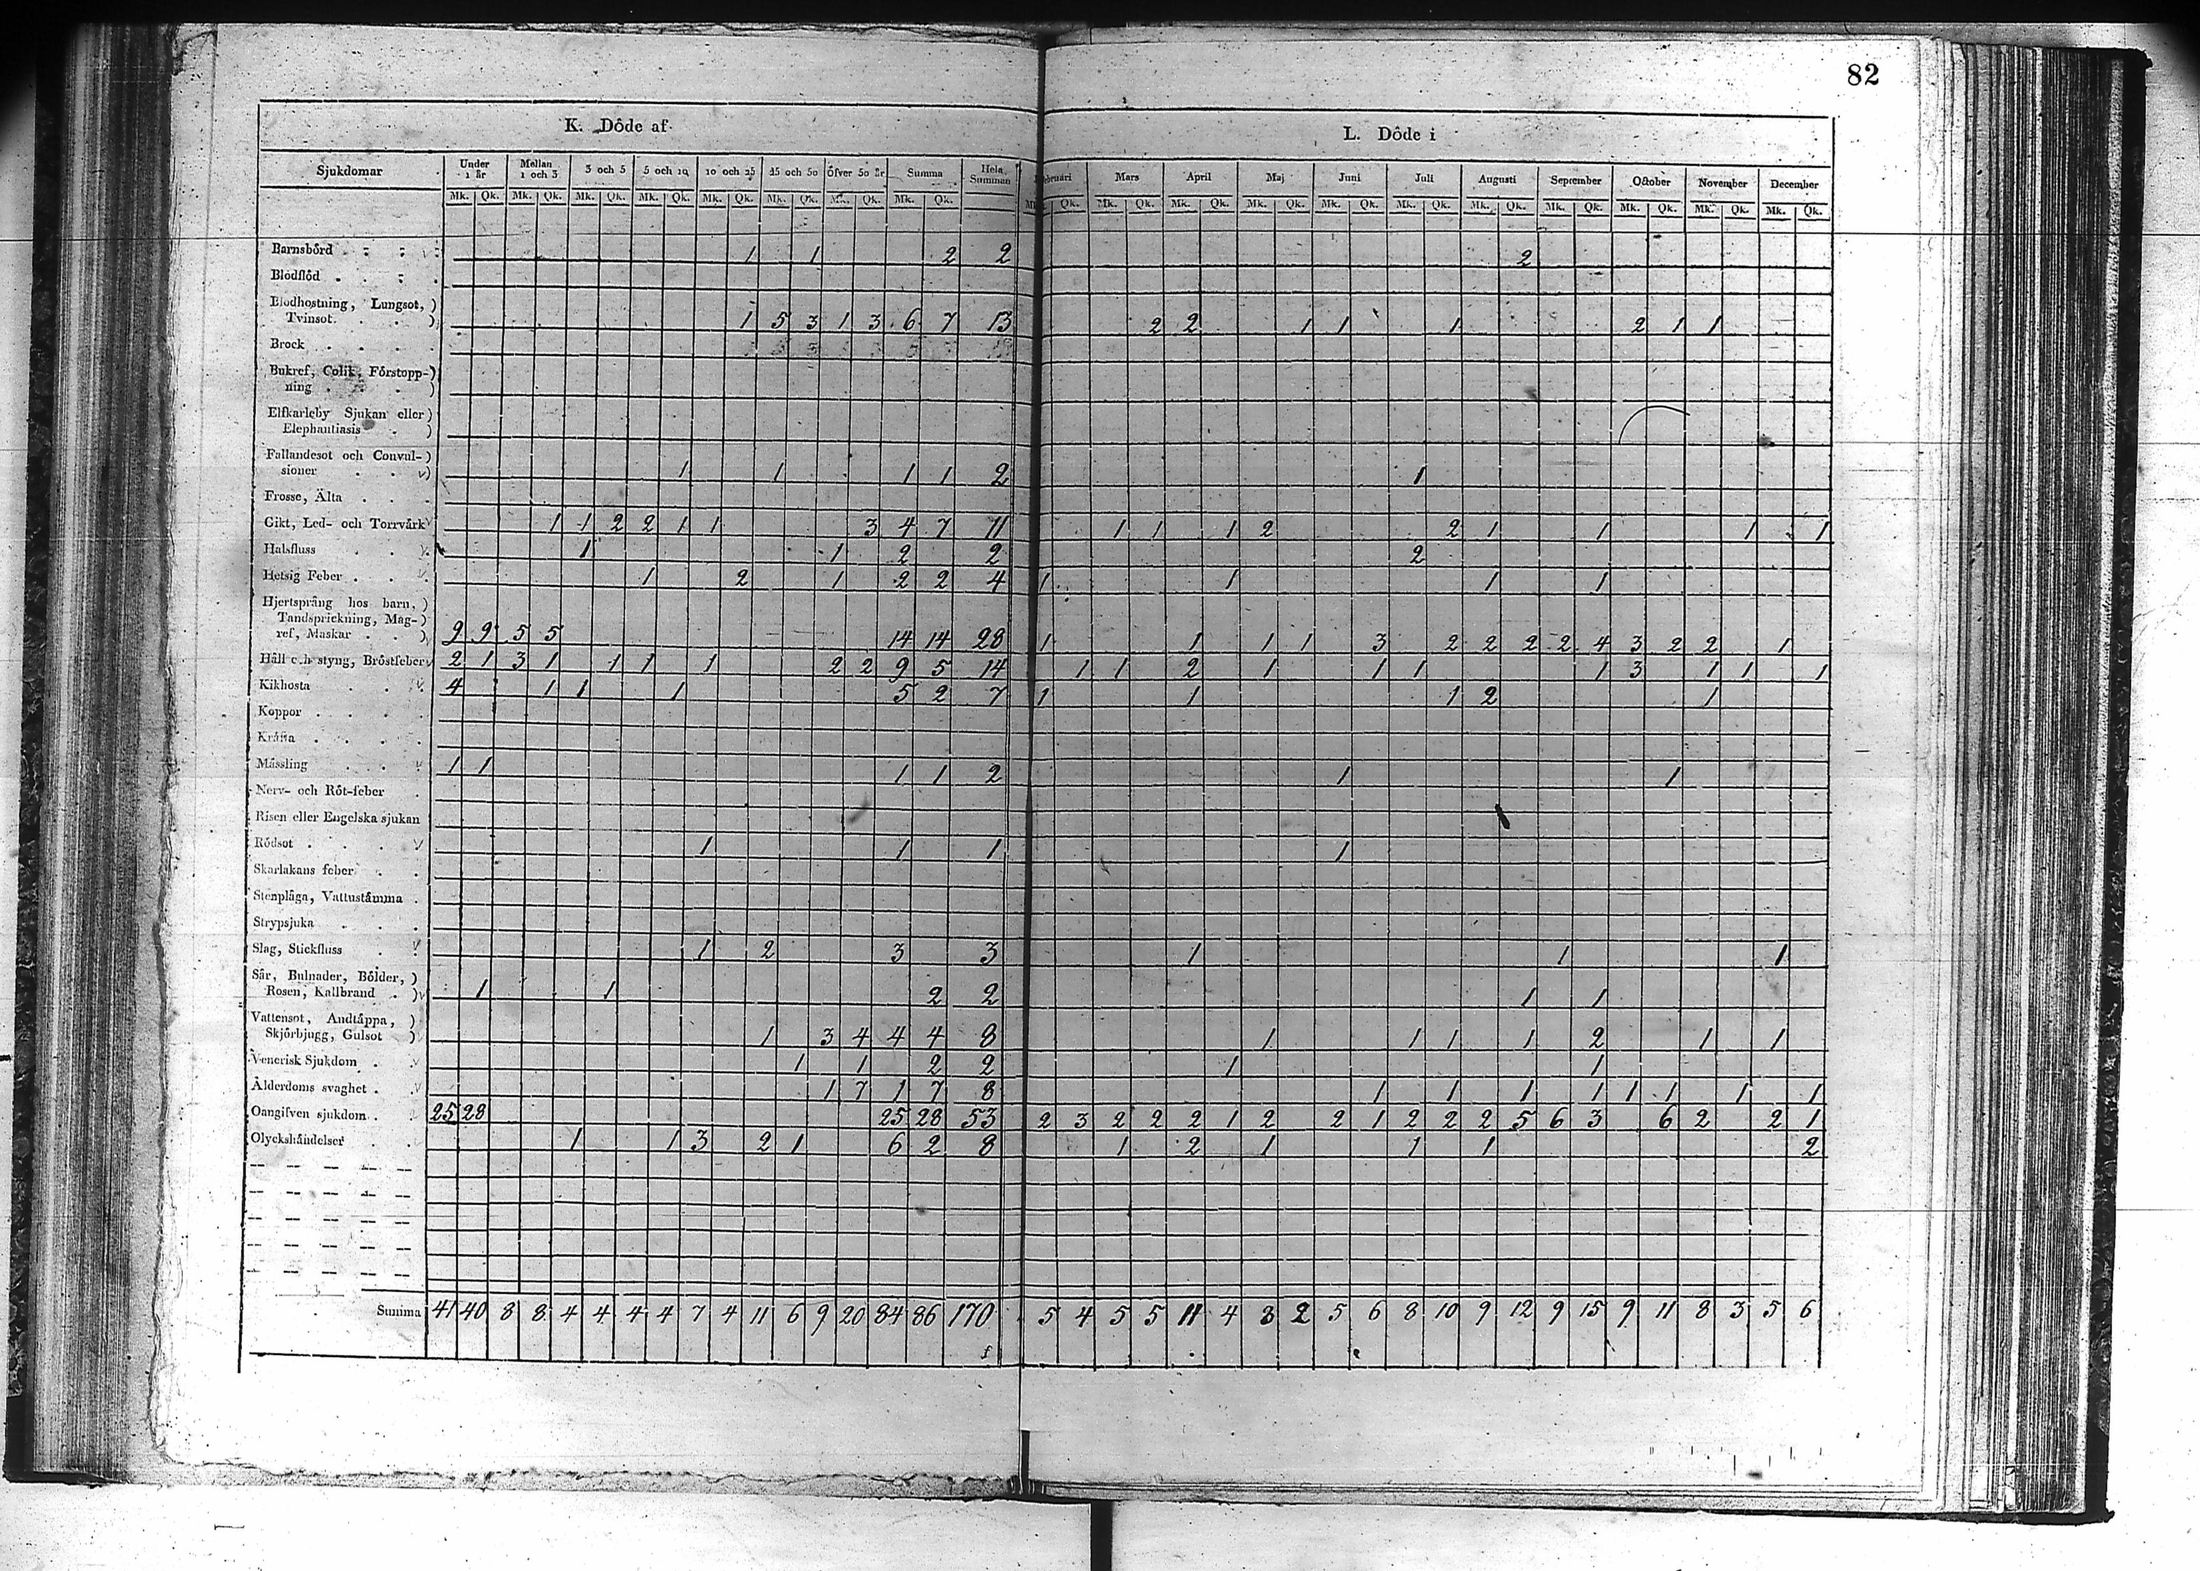 82
K. Döde af
L. Döde i
Sjukdomar Under 1 år Mellan 1 och 3 3 och 5 5 och 10 10 och 25 25 och 50 Öfver 50 år Summa Hela Summan Mars April Maj Juni Juli Augusti September October November December
Mk. Qk. Mk. Qk. Mk. Qk. Mk. Qk. Mk. Qk. Mk. Qk. Mk. Qk. Mk. Qk. Mk. Qk. Mk. Qk. Mk. Qk. Mk. Qk. Mk. Qk. Mk. Qk. Mk. Qk. Mk. Qk. Mk. Qk. Mk. Qk. Mk. Qk.
Barnsbörd 1 1 2 2 2
Blodflöd
Blodhostning, Lungsot,
Tvinsot 1 5 3 1 3 6 7 13 2 2 1 1 1 2 1 1
Brock
Bukref, Colik, Förstopp-
ning
Elfkarleby Sjukan eller
Elephantiasis
Fallandesot och Convul-
sioner 1 1 1 1 2 1
Frosse, Älta
Gikt, Led- och Torrvärk 1 1 2 2 1 1 3 4 7 11 1 1 1 2 2 1 1 1 1
Halsfluss 1 1 2 2 2
Hetsig Feber 1 2 1 2 2 4 1 1 1 1
Hjertsprång hos barn,
Tandsprickning, Mag-
ref, Maskar 9 9 5 5 14 14 28 1 1 1 1 3 2 2 2 2 4 3 2 2 1
Håll och styng, Bröstfeber 2 1 3 1 1 1 1 2 2 9 5 14 1 1 2 1 1 1 1 3 1 1 1
Kikhosta 4 1 1 1 5 2 7 1 1 1 2 1
Koppor
Kräfta
Mässling 1 1 1 1 2 1 1
Nerv- och Röt-feber
Risen eller Engelska sjukan
Rödsot 1 1 1 1
Skarlakans feber
Stenplåga, Vattustämma
Strypsjuka
Slag, Stickfluss 1 2 3 3 1 1 1
Sår, Bulnader, Bölder,
Rosen, Kallbrand 1 1 2 2 1 1
Vattensot, Andtäppa,
Skjörbjugg, Gulsot 1 3 4 4 4 8 1 1 1 1 2 1 1
Venerisk Sjukdom 1 1 2 2 1 1
Ålderdoms svaghet 1 7 1 7 8 1 1 1 1 1 1 1 1
Oangifven sjukdom 25 28 25 28 53 2 3 2 2 2 1 2 2 1 2 2 2 5 6 3 6 2 2 1
Olyckshändelser 1 1 3 2 1 6 2 8 1 2 1 1 1 2
Summa 41 40 8 8 4 4 4 4 7 4 11 6 9 20 84 86 170 5 4 5 5 11 4 8 2 5 6 8 10 9 12 9 15 9 11 8 3 5 6